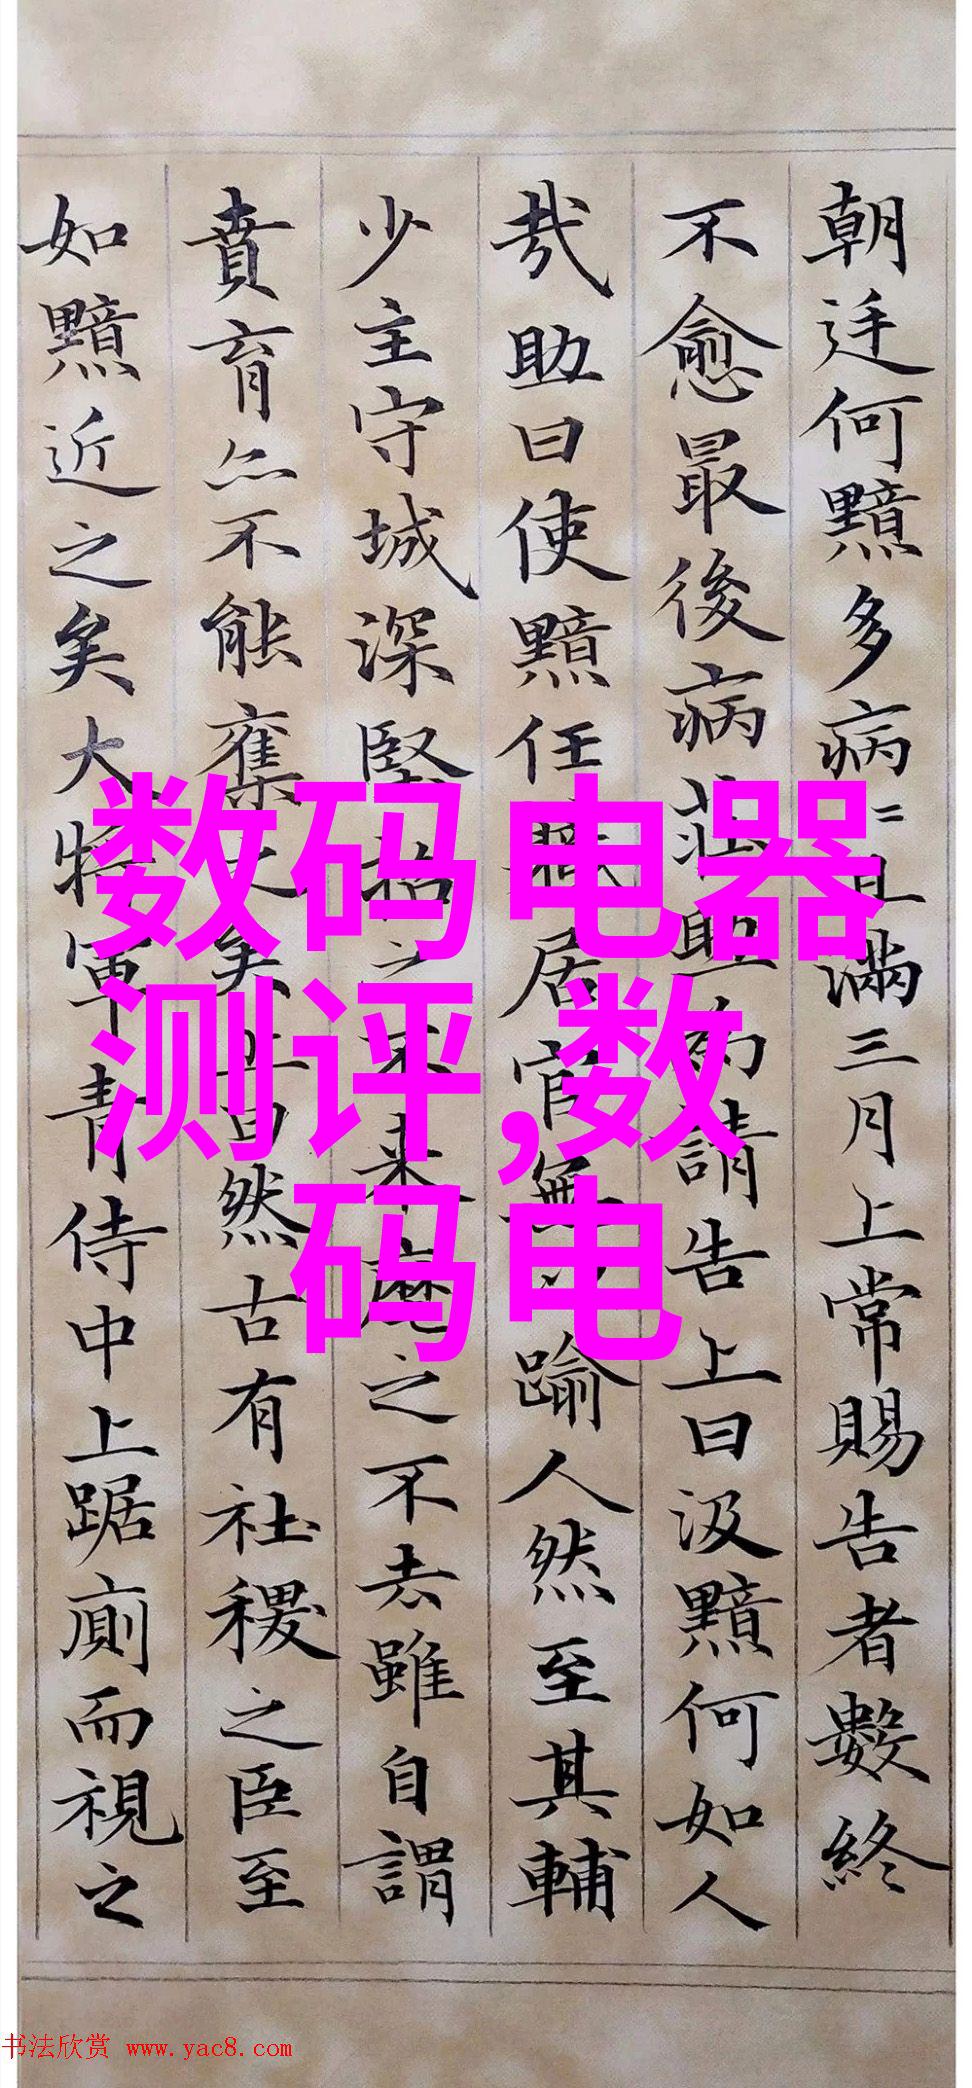 朝廷何黯多病病且滿三月上常賜告者數終
不愈最後病莊助為請告上曰汲黯何如人
哉助曰使黯任職居官無以踰人然至其輔
少主守城深堅招之不来麾之不去雖自謂
賁育亦不能奪之矣上曰然古有社稷之臣至
如黯近之矣大將軍青侍中上踞廁而視之
数码电器
测评,数
码电
书法欣赏 www.yac8.com